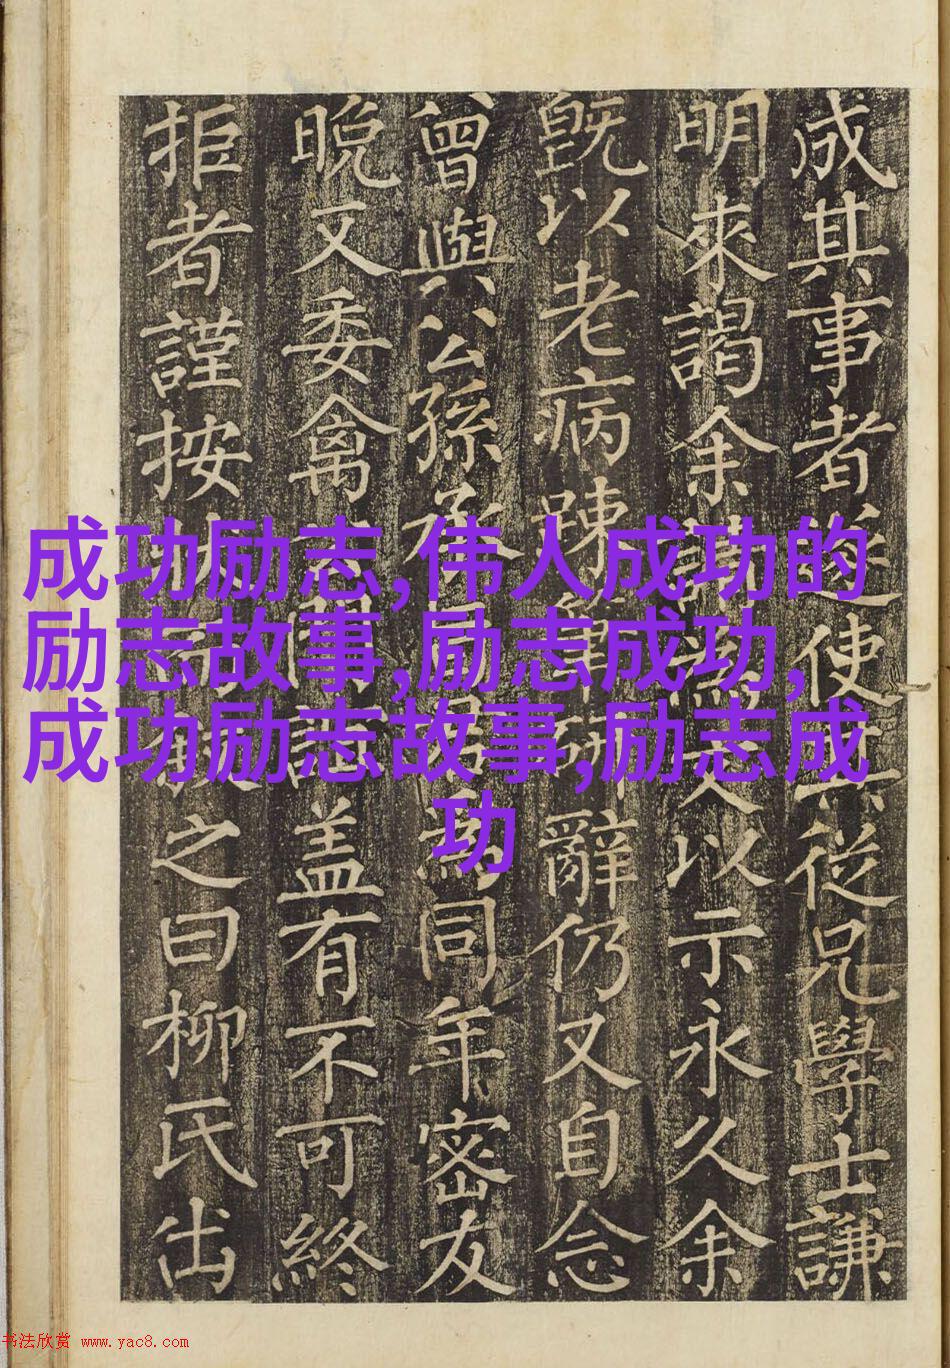 成其事者遂使其從兄學士謙
明來謁余文以示永久余
既以老病踈辭仍又自念
曾與公孫為同年密友
晚又委禽盖有不可終
拒者謹按之曰柳氏出
成功励志,伟人成功的
励志故事,励志成功,
成功励志故事,励志成
功
书法欣赏 www.yac8.com